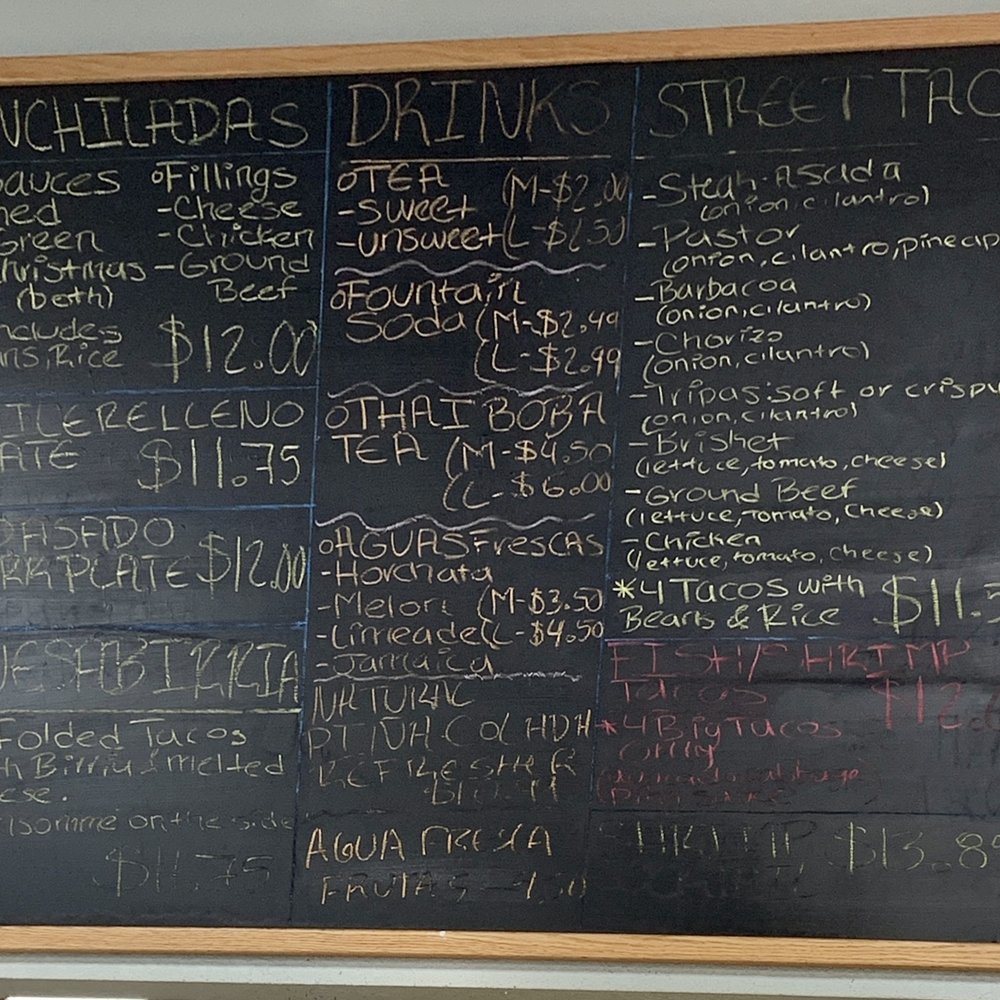 NCHILADAS
auces oFillings
-Cheese
Green -Chicken
hristmas -Ground
(both) Beef
ncludes
ns, Rice $12.00
ILERELLENO
ATE $11.75
ASADO
PLATE $12.00
ESABIRRIA
Folded Tacos
h Birria & melted
ese.
on the side
$11.75
DRINKS
oTEA (M-$2.00
-Sweet
-unsweet (L-$2.50
oFountain
Soda (M-$2.49
(L-$2.99
oTHAI BOBA
TEA (M-$4.50
(L-$6.00
oAGUAS Frescas
-Horchata
-Melon (M-$3.50
-Limeade (L-$4.50
-Jamaica
AGUA FRESCA
FRUTAS
STREET TAC
-Steak-Asada
(onion, cilantro)
-Pastor
(onion, cilantro, pineap
-Barbacoa
(onion, cilantro)
-Chorizo
(onion, cilantro)
-Tripas: soft or crispy
(onion, cilantro)
-Brisket
(lettuce, tomato, cheese)
-Ground Beef
(lettuce, Tomato, Cheese)
-Chicken
(lettuce, tomato, cheese)
*4 Tacos with
Beans & Rice $11.
FISH/SHRIMP
Tacos $12.
*4 Big Tacos
Only
SHRIMP $13.8